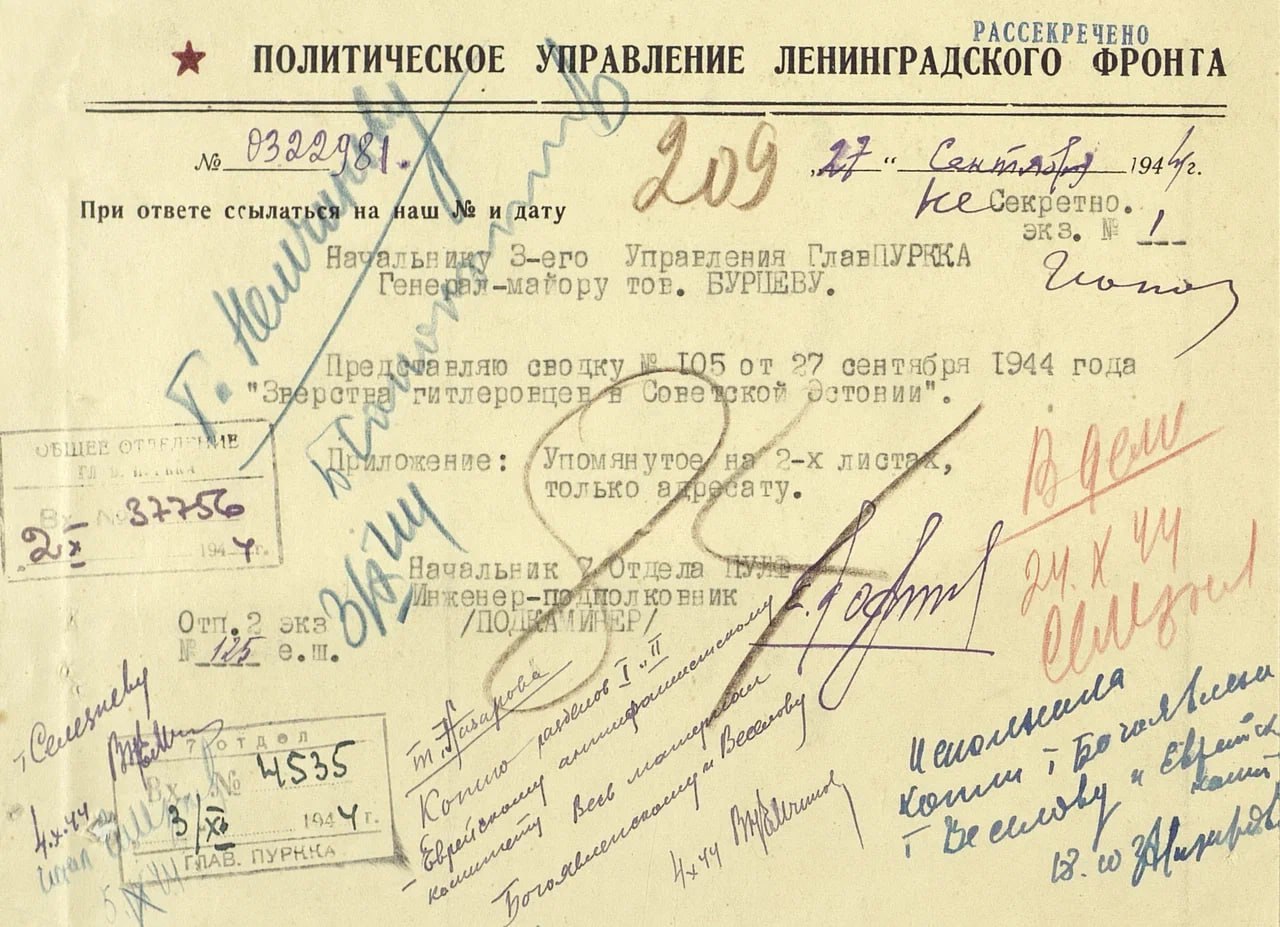 РАССЕКРЕЧЕНО
ПОЛИТИЧЕСКОЕ УПРАВЛЕНИЕ ЛЕНИНГРАДСКОГО ФРОНТА
№ 0322981.
209
„27“ Сентября 1944 г.
При ответе ссылаться на наш № и дату
не Секретно.
экз. № 1
Начальнику 3-его Управления ГлавПУРККА
Генерал-майору тов. БУРЦЕВУ.
Т. Немчинову
Представляю сводку № 105 от 27 сентября 1944 года
"Зверства гитлеровцев в Советской Эстонии".
ОБЩЕЕ ОТДЕЛЕНИЕ
ГЛАВ. ПУРККА
Вх. № 37756
„2 X 1944 г.
Приложение: Упомянутое на 2-х листах,
только адресату.
В дело
24.X 44
Селезнев
Начальник 7 Отдела ПУЛФ
Инженер-подполковник
/ПОДКАМИНЕР/
Отп.2 экз
№ 125 е.ш.
т Селезневу
4.X.44
7 отдел
Вх. № 4535
3/X 1944 г.
ГЛАВ. ПУРККА
5.X 44
т. Назарова
Копию разделов I и II
Еврейскому антифашистскому
комитету Весь материал
Богоявленскому и Веселову
4 X 44
Исполнила
копии т Богоявленс
т Веселову и Еврейск
комит